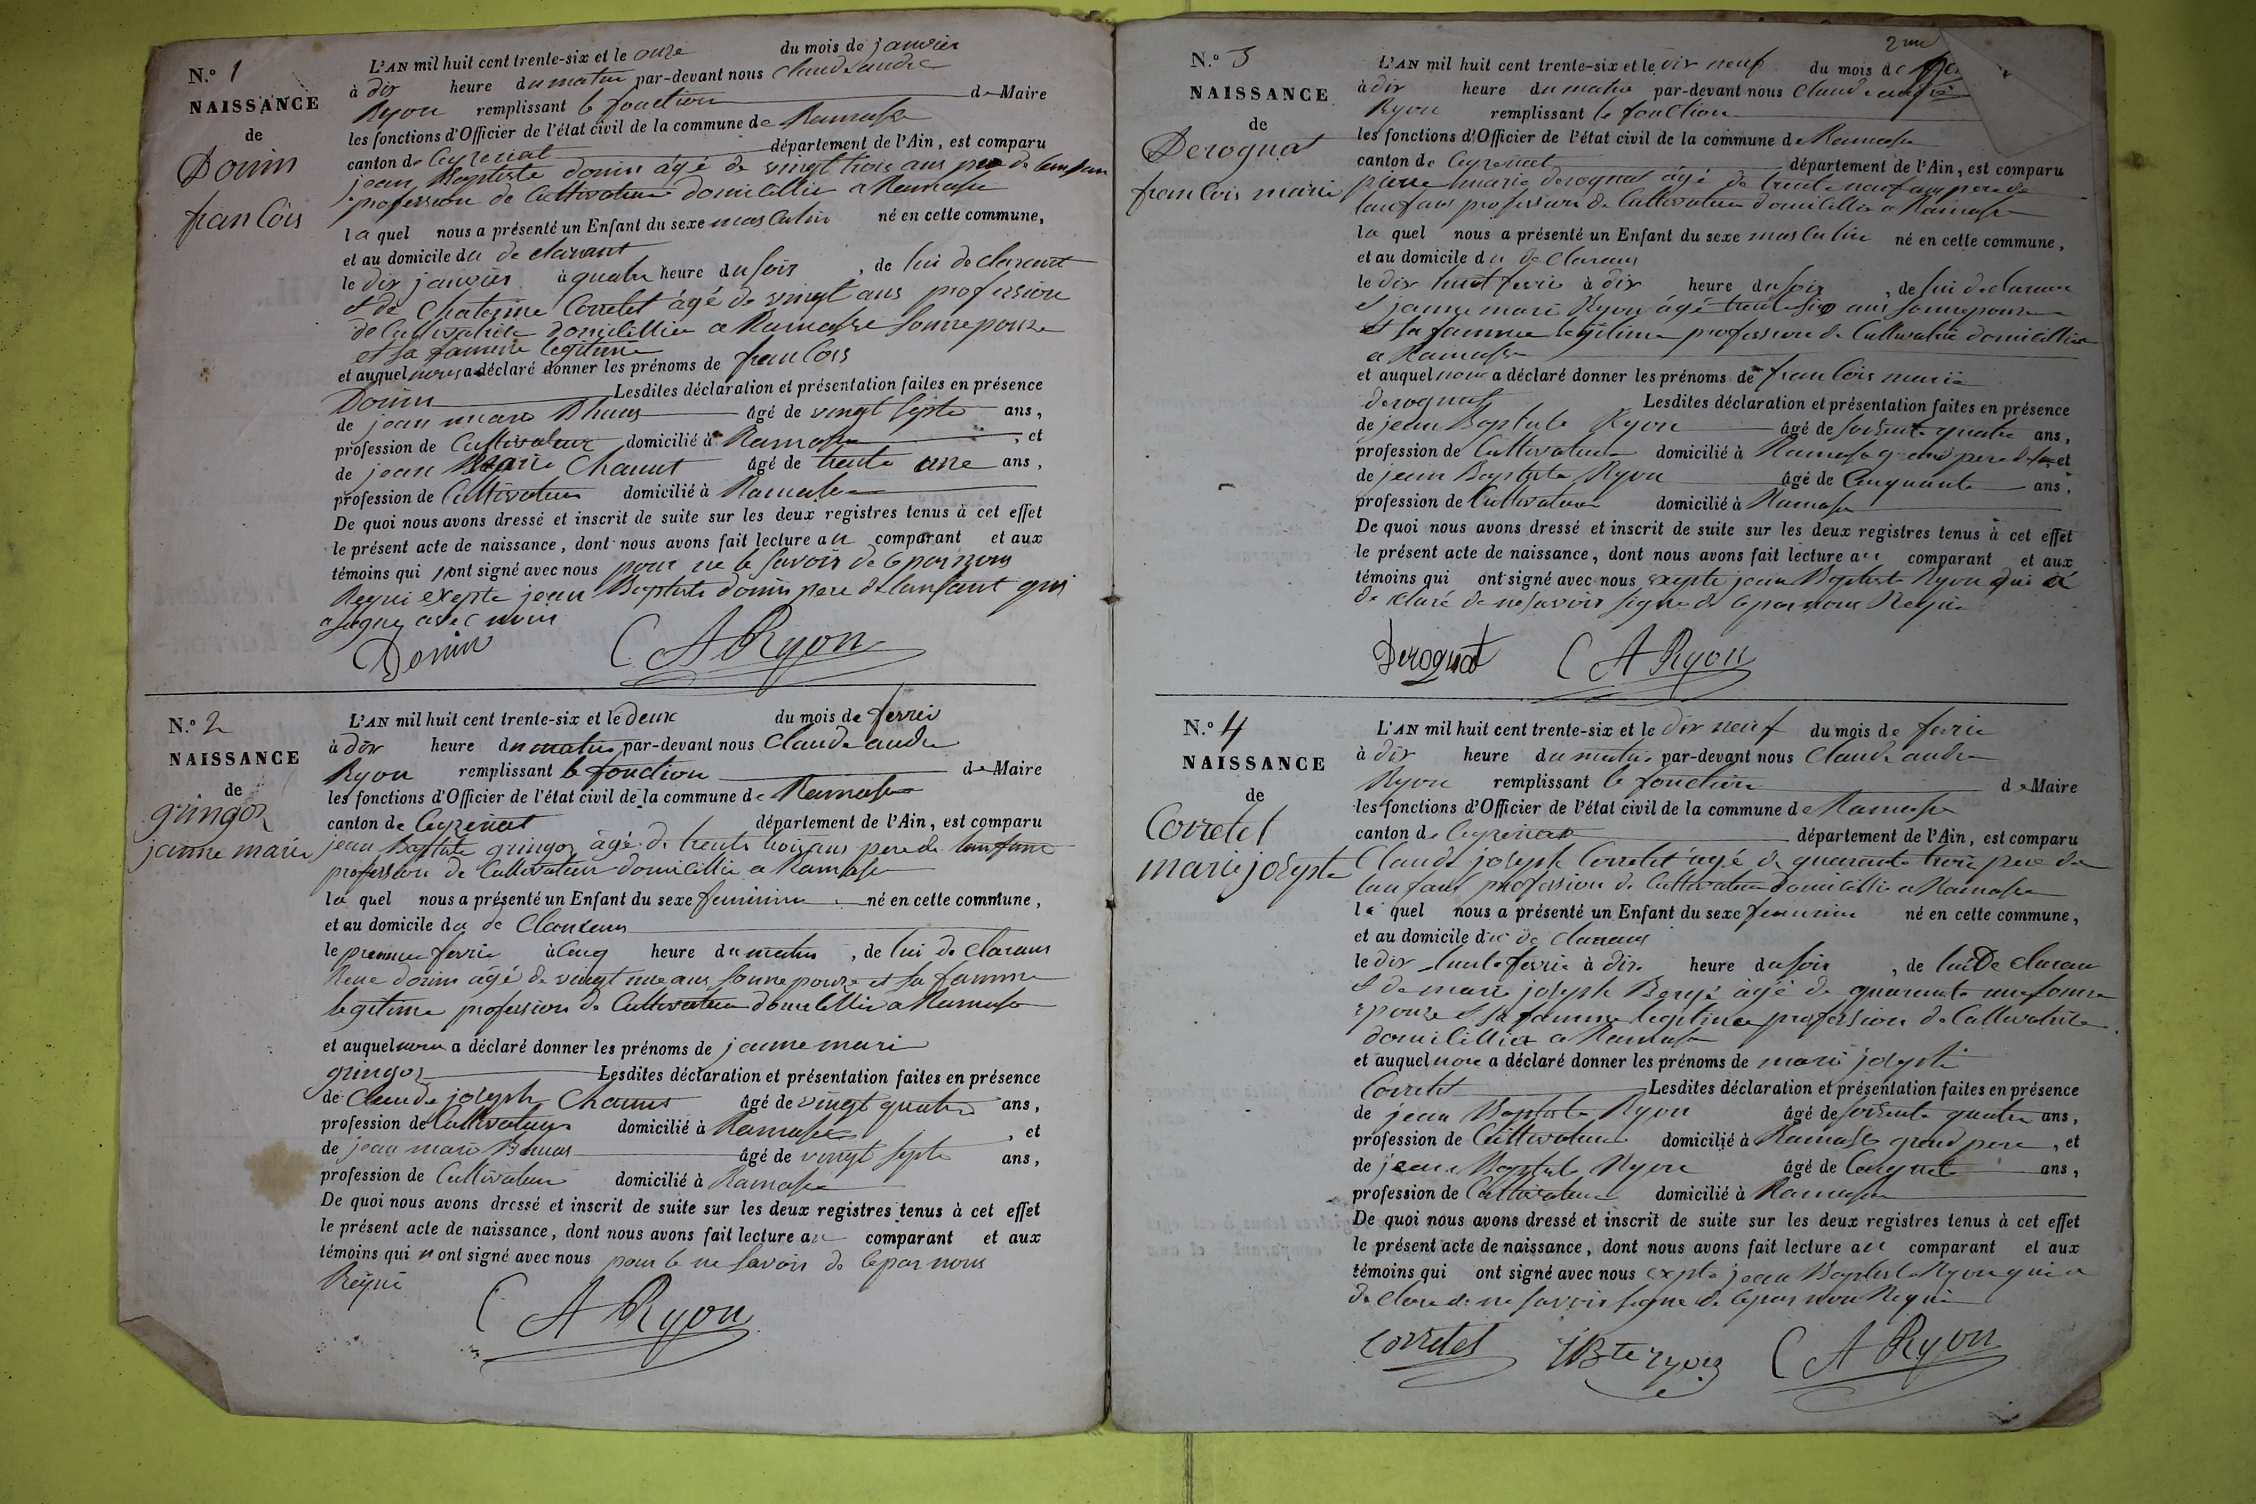 N.o 1
NAISSANCE
de
Donin
francois
L'AN mil huit cent trente-six et le onze du mois de janvier
à dix heure du matin par-devant nous claude andre
Ryon remplissant le fonction de Maire
les fonctions d'Officier de l'état civil de la commune de Ramasse
canton de Ceyzeriat département de l'Ain, est comparu
jean Baptiste donin âgé de vingt trois ans pere de lenfan
profession de Cultivateur domicillié a Ramasse
la quel nous a présenté un Enfant du sexe masculin né en cette commune,
et au domicile du de clarant
le dix janvier à quatre heure du soir , de lui declarent
et de Chaterine Corretet âgé de vingt ans profession
de Cultivatrice domicillié a Ramasse sonnepouze
et sa famme legitime
et auquel nous a déclaré donner les prénoms de francois
Donin Lesdites déclaration et présentation faites en présence
de jean marie Buus âgé de vingt septe ans,
profession de Cultivateur domicilié à Ramasse , et
de jean Marie Chanut âgé de trente une ans,
profession de Cultivateur domicilié à Ramasse
De quoi nous avons dressé et inscrit de suite sur les deux registres tenus à cet effet
le présent acte de naissance, dont nous avons fait lecture au comparant et aux
témoins qui nont signé avec nous pour ne le savoir de ce par nous
Requi exepte jean Baptiste donin pere de lanfant qui
a signe avec nous
Donin C A Ryon
N.o 2
NAISSANCE
de
gringoz
janne marie
L'AN mil huit cent trente-six et le deux du mois de fevrei
à dix heure du matin par-devant nous Claude andre
Ryon remplissant le fonction de Maire
les fonctions d'Officier de l'état civil de la commune de Ramasse
canton de Ceyzeriat département de l'Ain, est comparu
jean Baptiste gringoz âgé de trente trois ans pere de lanfant
profession de Cultivateur domicillié a Ramasse
la quel nous a présenté un Enfant du sexe feminin né en cette commune,
et au domicile du de Claraus
le premier fevrie à Cinq heure du matin , de lui de claraus
Rene donin âgé de vingt une ans sonnepouze et sa famme
legitime profession de Cultivatrice domicillié a Ramasse
et auquel nous a déclaré donner les prénoms de janne mari
gringoz Lesdites déclaration et présentation faites en présence
de Claude joseph Chanut âgé de vingt quatre ans,
profession de Cultivateur domicilié à Ramasse , et
de jean marie Buus âgé de vingt septe ans,
profession de Cultivateur domicilié à Ramasse
De quoi nous avons dressé et inscrit de suite sur les deux registres tenus à cet effet
le présent acte de naissance, dont nous avons fait lecture au comparant et aux
témoins qui n ont signé avec nous pour le ne savoir de ce par nous
Requi
C A Ryon
2me
N.o 3
NAISSANCE
de
Derognat
francois marie
L'AN mil huit cent trente-six et le dix neuf du mois de
à dix heure du matin par-devant nous Claude andre
Ryon remplissant le fonction
les fonctions d'Officier de l'état civil de la commune de Ramasse
canton de Ceyzeriat département de l'Ain, est comparu
pierre marie derognat âgé de trente neuf ans pere de
lanfans profession de Cultivateur domicillié a Ramasse
la quel nous a présenté un Enfant du sexe masculin né en cette commune,
et au domicile du de Claraus
le dix huit fevrie à dix heure du soir , de lui de claraus
et janne marie Ryon âgé trente six ans sonnepouze
et sa famme legitime profession de Cultivatrice domicillié
a Ramasse
et auquel nous a déclaré donner les prénoms de francois marie
derognat Lesdites déclaration et présentation faites en présence
de jean Baptiste Ryon âgé de soixente quatre ans,
profession de Cultivateur domicilié à Ramasse grand pere et
de jean Baptiste Ryon âgé de Cinquante ans,
profession de Cultivateur domicilié à Ramasse
De quoi nous avons dressé et inscrit de suite sur les deux registres tenus à cet effet
le présent acte de naissance, dont nous avons fait lecture au comparant et aux
témoins qui ont signé avec nous exepte jean Baptiste Ryon qui a
de claré de ne savoir signe de ce par nous Requi
Derognat C A Ryon
N.o 4
NAISSANCE
de
Corretet
marie josepte
L'AN mil huit cent trente-six et le dix neuf du mois de fevrie
à dix heure du matin par-devant nous Claude andre
Ryon remplissant le fonction de Maire
les fonctions d'Officier de l'état civil de la commune de Ramasse
canton de Ceyzeriat département de l'Ain, est comparu
Claude joseph Corretet âgé de quarante trois pere de
lanfant profession de Cultivateur domicillié a Ramasse
la quel nous a présenté un Enfant du sexe feminin né en cette commune,
et au domicile du de claraus
le dix huit fevrie à dix heure du soir , de lui De claraus
et de marie joseph Bergé âgé de quarante une sonne
epouze et sa famme legitime profession de Cultivatrice
domicillié a Ramasse
et auquel nous a déclaré donner les prénoms de marie josepte
Corretet Lesdites déclaration et présentation faites en présence
de jean Baptiste Ryon âgé de soixente quatre ans,
profession de Cultivateur domicilié à Ramasse grand pere , et
de jean Baptiste Ryon âgé de Cinquante ans,
profession de Cultivateur domicilié à Ramasse
De quoi nous avons dressé et inscrit de suite sur les deux registres tenus à cet effet
le présent acte de naissance, dont nous avons fait lecture au comparant et aux
témoins qui ont signé avec nous expte jean Baptiste Ryon qui a
de clare de ne savoir signe de ce par nous Requi
Corretet JBte ryon C A Ryon